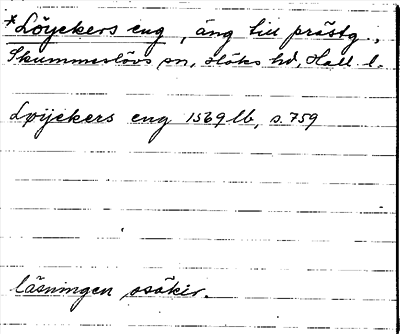 *Löyckers eng, äng till prästg.,
Skummeslövs sn, Höks hd, Hall. l.
Løÿckers eng 1569 lb, s. 759
läsningen osäker.